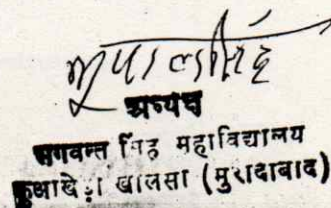 भूपालसिंह
अध्यक्ष
भगवन्त सिंह महाविद्यालय
कुआखेड़ा खालसा (मुरादाबाद)